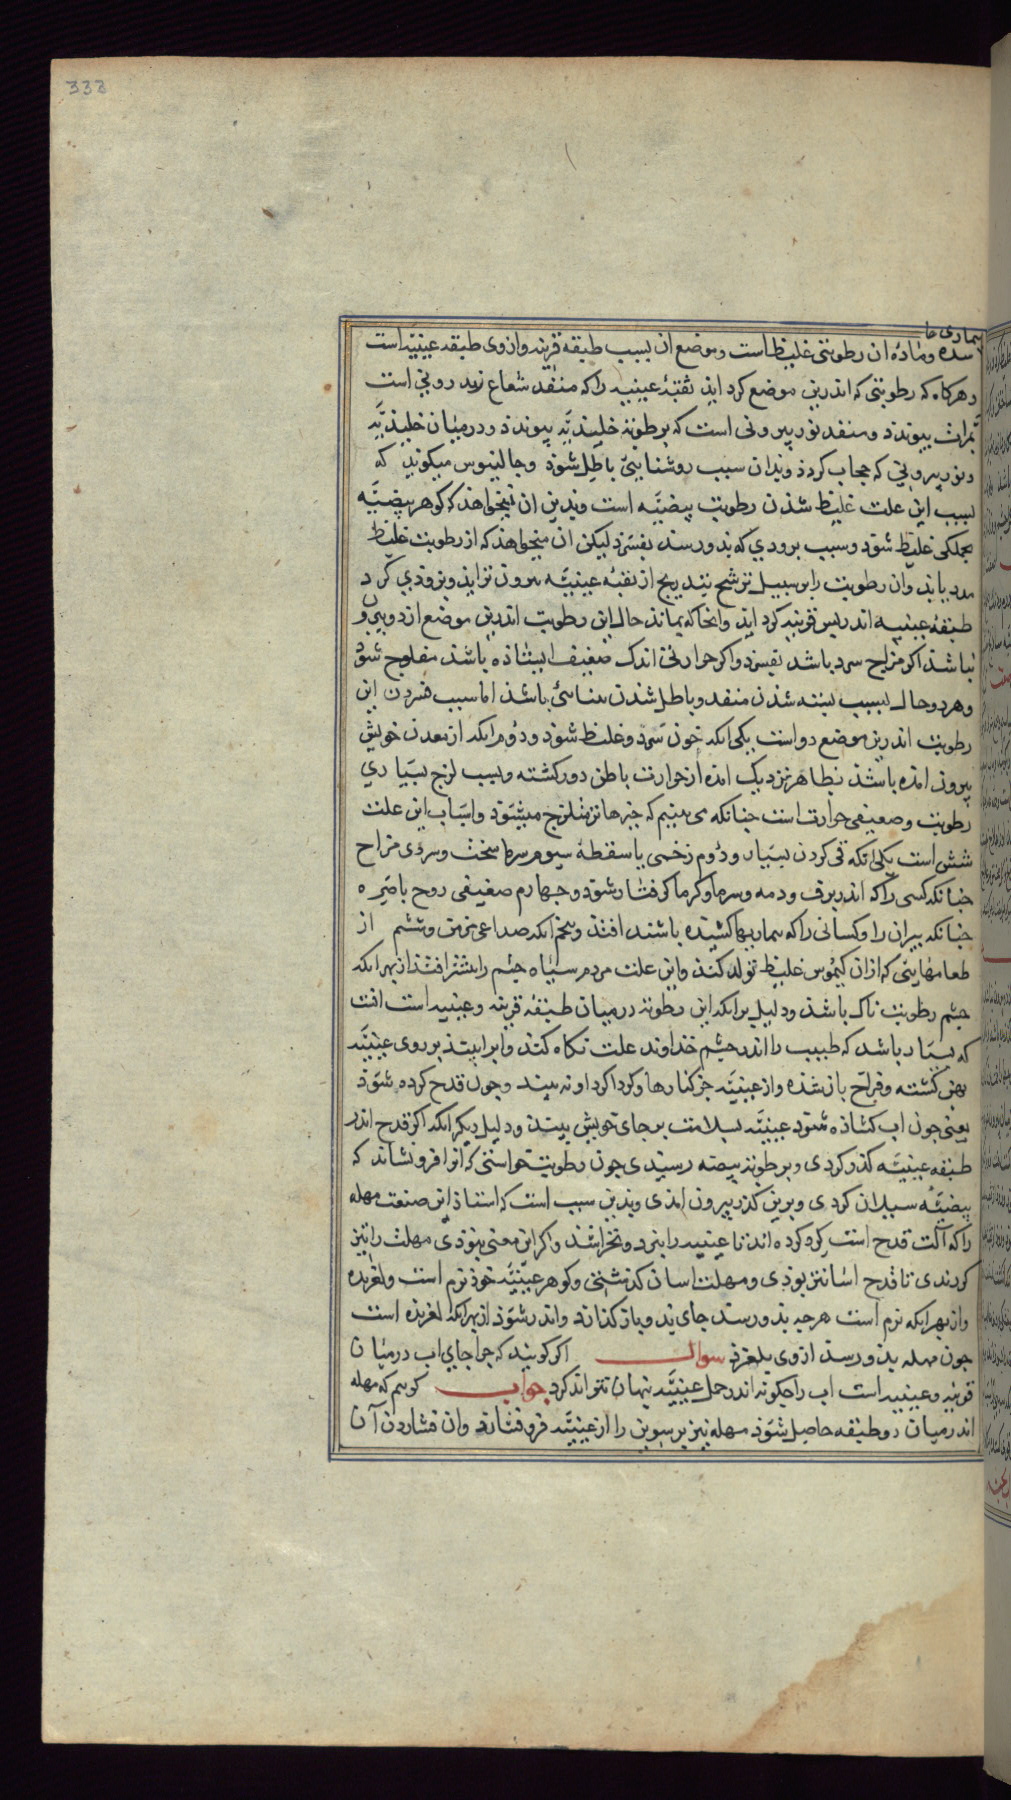 333
بیماری ها
سده وماده ان رطوبتی غلیظ است وموضع ان لسبب طبقه قرنیه وازوی طبقه عینیه است
وهرکاه که رطوبتی که اندرین موضع کرد اید ثقبۀ عینیه راکه منفذ شعاع نور رونی است
پیوندد ومنفذ نور بیرونی است که برطوبة جلیدیّه پیوندد ودرمیان جلیدیّه
ونور بیرونی که حجاب کردد وبدان سبب روشنایی باطل شوذ وجالینوس میکوید که
لسبب این علت غلیظ شدن رطوبت بیضیّه است وبدین ان نمیخواهد که کوهر بیضیّه
بجملکی غلیظ شوذ وسبب برودی که بدو رسد بفسرد لیکن ان میخواهد که از رطوبت غلیظ
مدد یابد وان رطوبت رابر سبیل ترشح بتدریج از ثقبۀ عینیّه بیرون تراید وبزودی کرد
طبقۀ عینیه اندر پس قرنیه کرد اید وانجاکه بماند حال این رطوبت اندرین موضع از دو بیرون
نباشد اکر مزاج سرد باشد بفسرد واکر حرارتی اندک ضعیف ایستاذه باشد مفلوج شوذ
وهردو حال لسبب بسته شدن منفذ وباطل شدن بینائی باشد اما سبب فسردن این
رطوبت اندرین موضع دو است یکی انکه خون سرد وغلیظ شوذ ودوم انکه از معدن خویش
بیرون امده باشد بظاهر نزدیک امده از حرارت باطن دور کشته وسبب لزج بسیاری
رطوبت وضعیفی حرارت است چنانکه می بینیم که چیزها تر متلزج میشوذ واسباب این علت
شش است یکی انکه قی کردن بسیار ودوم زخمی یا سقطۀ سیوم سرما سخت وسردی مزاج
چنانکه کسی راکه اندر برف ودمه وسرما وکرما کرفتار شوذ وچهارم ضعیفی روح باصره
چنانکه پیران را وکسانی راکه بیماریها کشیده باشند افتد وپنجم انکه صداعی مزمن وششم از
طعامهایی که ازان کیموس غلیظ تولد کند واین علت مردم سیاه چشم را بیشتر افتد ازبهر انکه
چشم رطوبت ناک باشد ودلیل برانکه این رطوبة درمیان طبقۀ قرنیه وعینیه است انست
که بسیار باشد که طبیب را اندر چشم خداوند علت نکاه کند واب رابیند بر روی عینیّه
پهن کشته وفراخ باز شده واز عینیّه جز کنارها وکردا کرد او نه بیند وچون قدح کرده شوذ
یعنی چون اب کشاذه شوذ عینیّه بسلامت برجای خویش بیند ودلیل دیکر انکه اکر قدح اندر
طبقه عینیّه کذر کردی وبرطوبة بیضه رسیدی چون رطوبت خواستی که انرا فرو نشاند که
بیضیّه سیلان کردی وبرین کذر بیرون امدی وبدین سبب است که استاذ این صنعت مهله
راکه آلت قدح است کرد کرده اند تا عینیه را نبرد ونخراشد واکر این معنی نبوذی مهلت را تیز
کردندی تا قدح اسانتر بوذی ومهلت اسان کذشتی وکوهر عینیّه خوذ نرم است ولغزنده
وازبهر انکه نرم است هرچه بدو رسد جای بذ وباز کذارد واندر شوذ ازبهر انکه لغزنده است
چون مهله بدو رسد ازوی بلغزذ سوال اکر کویند که چرا جای اب درمیان
قرنیه وعینیه است اب راچکونه اندر حمل عینیّه پنهان تواند کرد جواب کویم که مهله
اندرمیان دو طبقه حاصل شوذ مهله نیز بر سوین را از عینیّه فرو فشارد وان فشاردن آن